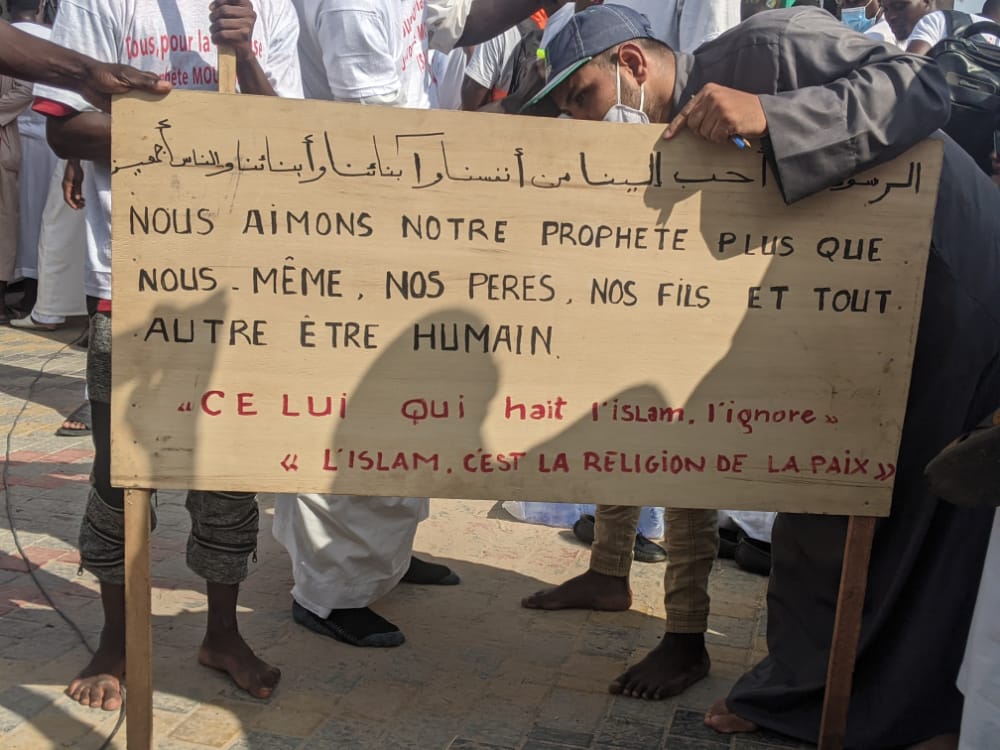 Tous, pour la
phète MOU
الرسول أحب إلينا من أنفسنا وآبنائنا وأبنائنا والناس أجمعين
NOUS AIMONS NOTRE PROPHETE PLUS QUE
NOUS-MÊME, NOS PERES, NOS FILS ET TOUT
AUTRE ÊTRE HUMAIN.
"CE LUI QUI hait l'islam, l'ignore"
"L'ISLAM, C'EST LA RELIGION DE LA PAIX"